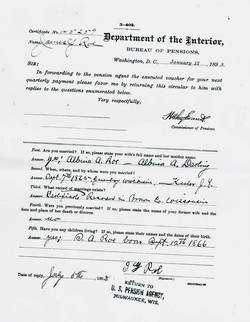 3-402.
Certificate No.
Name, James J Roe
Department of the Interior,
BUREAU OF PENSIONS,
Washington, D. C., January 15, 1898.
SIR:
In forwarding to the pension agent the executed voucher for your next
quarterly payment please favor me by returning this circular to him with
replies to the questions enumerated below.
Very respectfully,
H. Clay Evans
Commissioner of Pensions.
First. Are you married? If so, please state your wife's full name and her maiden name.
yes: Albina A. Roe - Albina A. Darling
Second. When, where, and by whom were you married?
Sept. 7th 1865
Third. What record of marriage exists?
Certificate Record in Brown Co. Wisconsin
Fourth. Were you previously married? If so, please state the name of your former wife and the
date and place of her death or divorce.
no
Fifth. Have you any children living? If so, please state their names and the dates of their birth.
yes; S. A. Roe born Sept. 12th 1866
J J Roe
Date of reply, July 6th, 1898
RETURN TO
U. S. PENSION AGENCY,
MILWAUKEE, WIS.